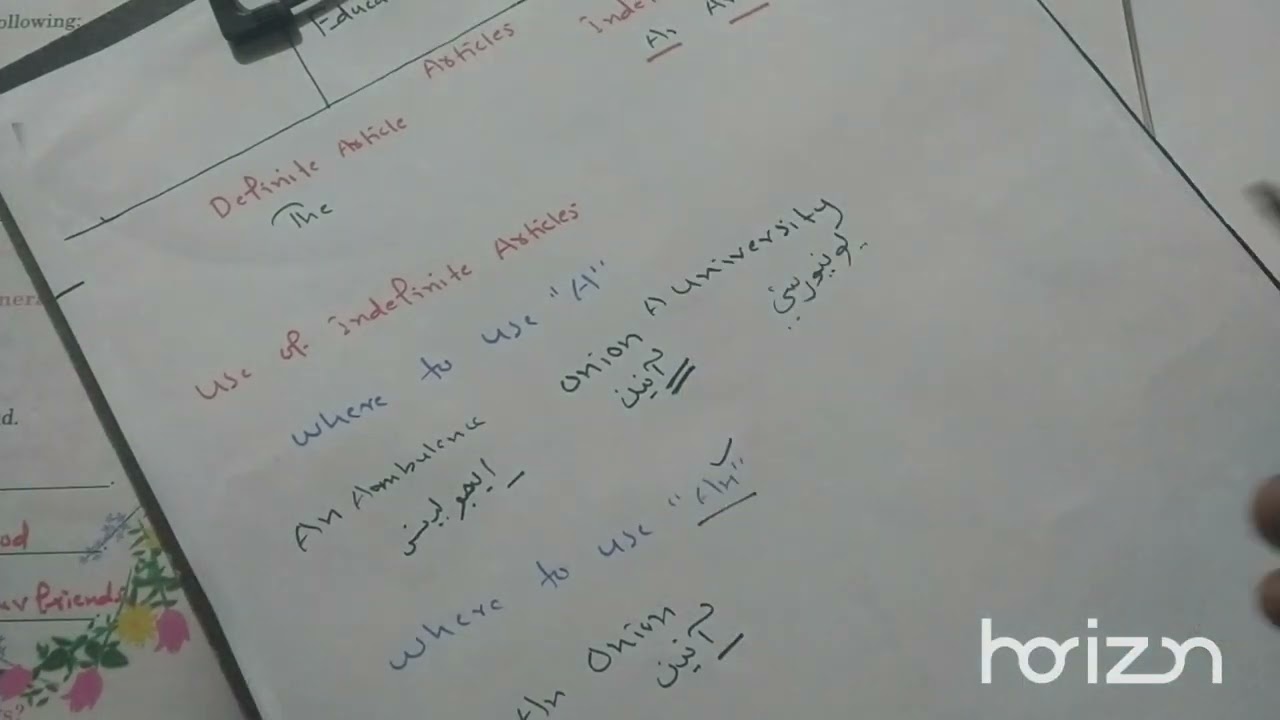 ollowing:
Educa
Articles
inde
An
Definite Article
The
Use of indefinite Articles
where to use "A"
An Aambulance
ایمبولینس
onion
آنین
A university
یونیورسٹی
where to use "An"
An Onion
آنین
d.
od
ur friends
horizon